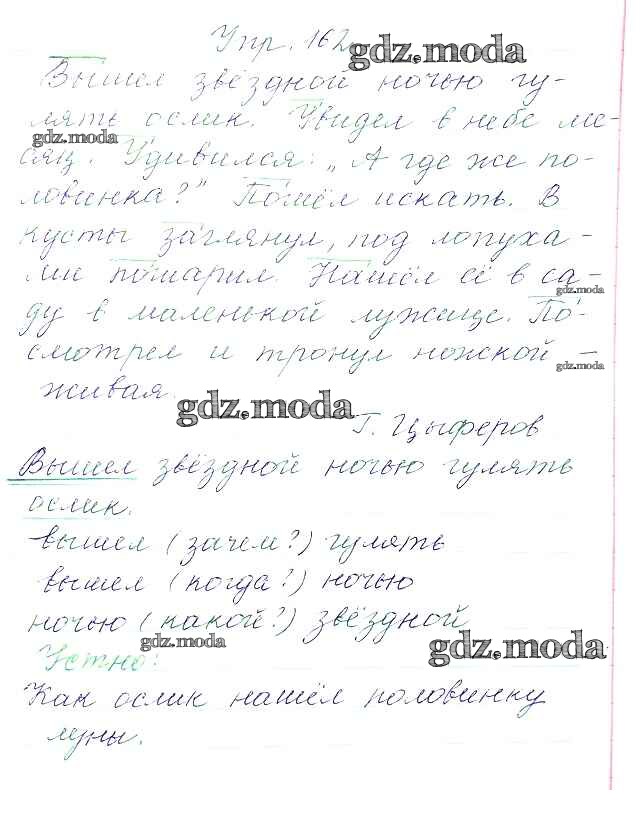 Упр. 162
gdz.moda
Вышел звёздной ночью гу-
лять ослик. Увидел в небе ме-
gdz.moda
сяц. Удивился: „А где же по-
ловинка?" Пошёл искать. В
кусты заглянул, под лопуха-
ми пошарил. Нашёл её в са-
gdz.moda
ду в маленькой лужице. По-
смотрел и тронул ножкой –
gdz.moda
живая.
gdz.moda
Г. Цыферов
Вышел звёздной ночью гулять
ослик.
вышел (зачем?) гулять
вышел (когда?) ночью
ночью (какой?) звёздной
gdz.moda
gdz.moda
Устно:
Как ослик нашёл половинку
луны.